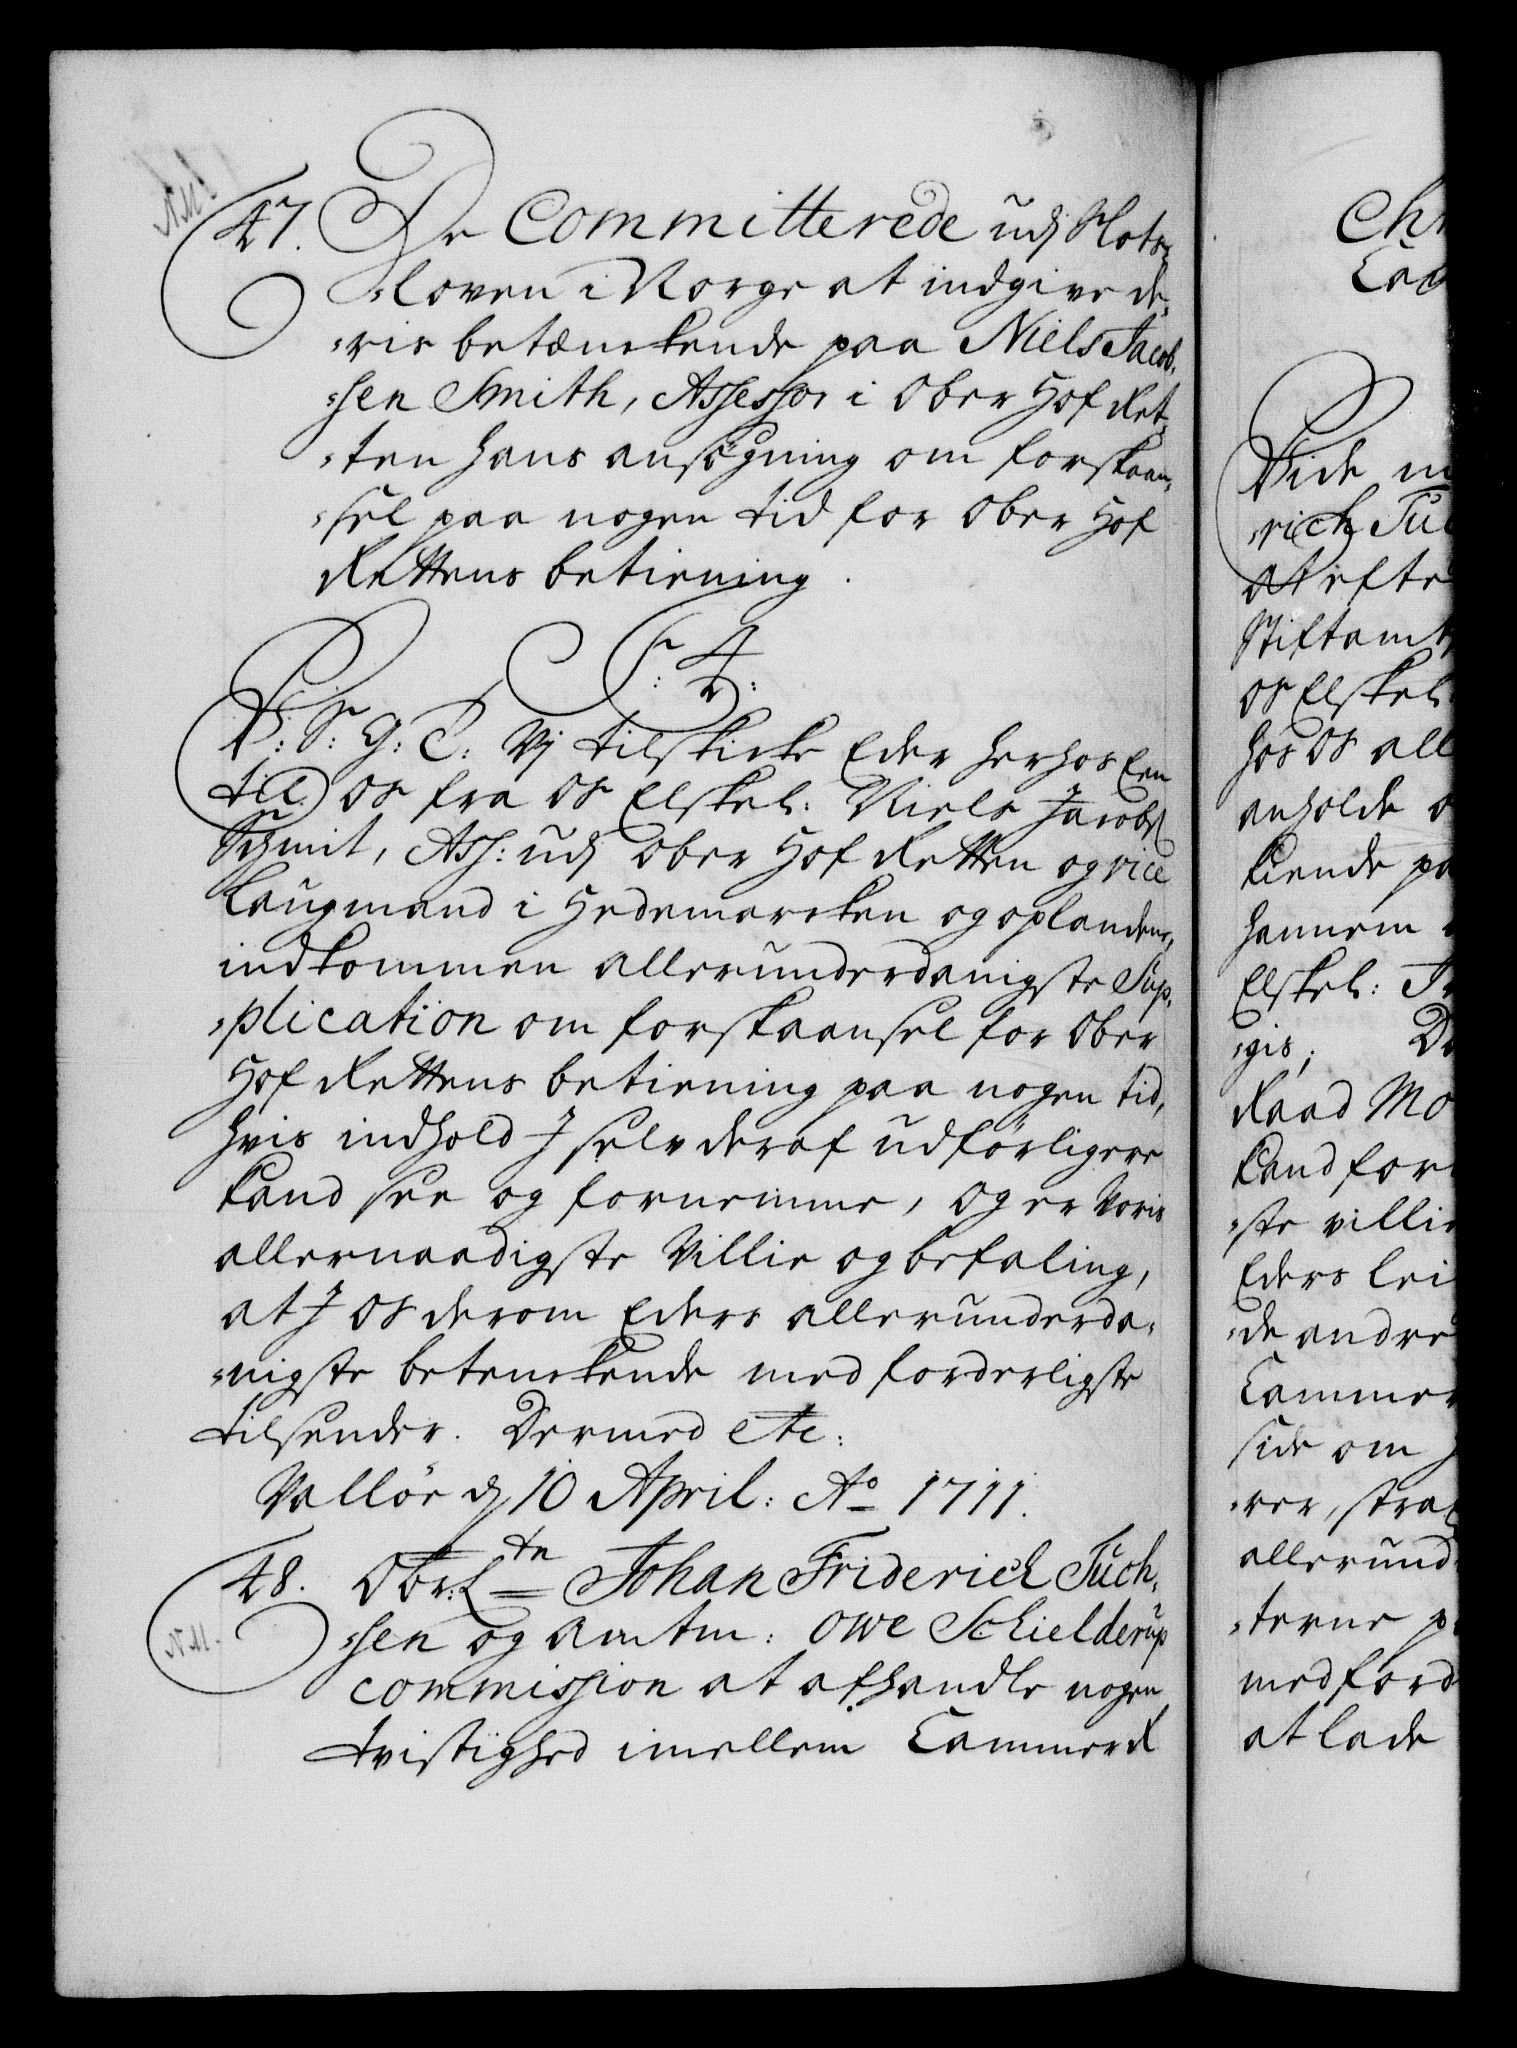 47. De Committerede udj Slots¸
¸loven i Norge at indgive de¸
¸ris betænckende paa Niels Jacob¸
¸sen Smith, Assessor i Ober Hof Ret¸
¸ten hans ansøgning om forskaan¸
¸sel paa nogen tid for Ober Hof
Rettens betiening.
F: 4:
V: S: G: T: Vj tilskicke Eder herhos Een
til OS fra OS Elskel: Niels Jacobs
Schmit, Ass: udj Ober Hof Retten og vice
Laugmand i Hedemarcken og oplandene,
indkommen allerunderdanigste Sup¸
¸plication om forskaansel for Ober
Hof Rettens betiening paa nogen tid,
hvis indhold I selv deraf udførligere
kand see og fornemme, og er Voris
allernaadigste Villie og befaling,
at I OS derom Eders allerunderda¸
¸nigste betenckende med forderligste
tilsender. Dermed etc:
Valløe d 10 April: Ao 1711.
48. Obr: Ltn Johan Friderich Tuch¸
¸sen og Amtm: Owe Schielderup
commission at afhandle nogen
tvistighed imellem Cammer R
Chr
Cam
Vide
¸rich Tu
at efte
Stiftamt
OS Elskel:
hos OS all
anholde
kiende pa
hannem
Elskel:
¸gis,
Raad Mo
kand for
¸ste villie
Eders
¸de andre
Cammer
side om
¸rer, strax
allerund
¸terne p
med ford
at lade